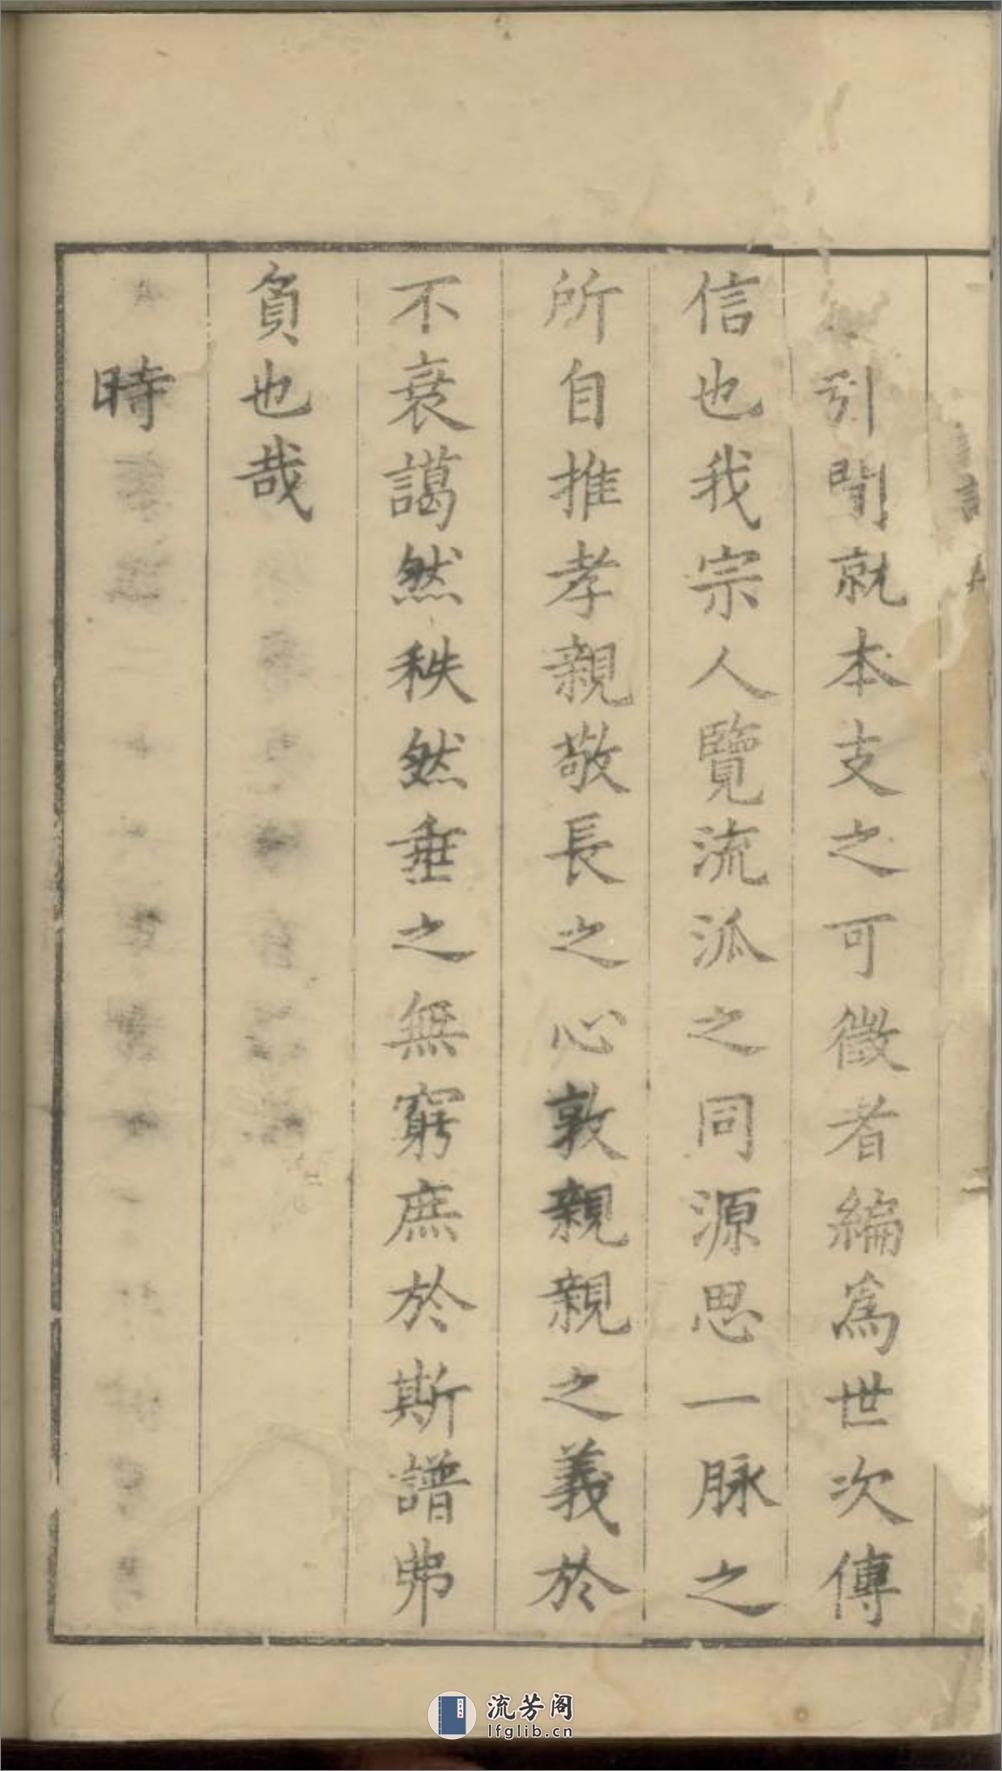 引聞就本支之可徵者編爲世次傳
信也我宗人覽流泒之同源思一脉之
所自推孝親敬長之心敦親親之義於
不衰謁然秩然垂之無窮庶於斯譜弗
負也哉
時
流芳阁
lfglib.cn